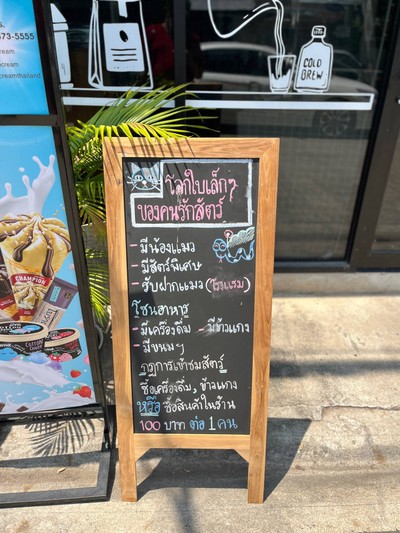 s.
73-5555
ream
cream
creamthailand
COLD
BREW
CHAMPION
โลกใบเล็กๆ
ของคนรักสัตว์
- มีน้องแมว
- มีสัตว์พิเศษ
- รับฝากแมว (โรงแรม)
โซนอาหาร
- มีเครื่องดื่ม - มีข้าวแกง
- มีขนมๆ
กฎการเข้าชมสัตว์
ซื้อเครื่องดื่ม, ข้าวแกง
หรือ ซื้อสินค้าในร้าน
100 บาท ต่อ 1 คน